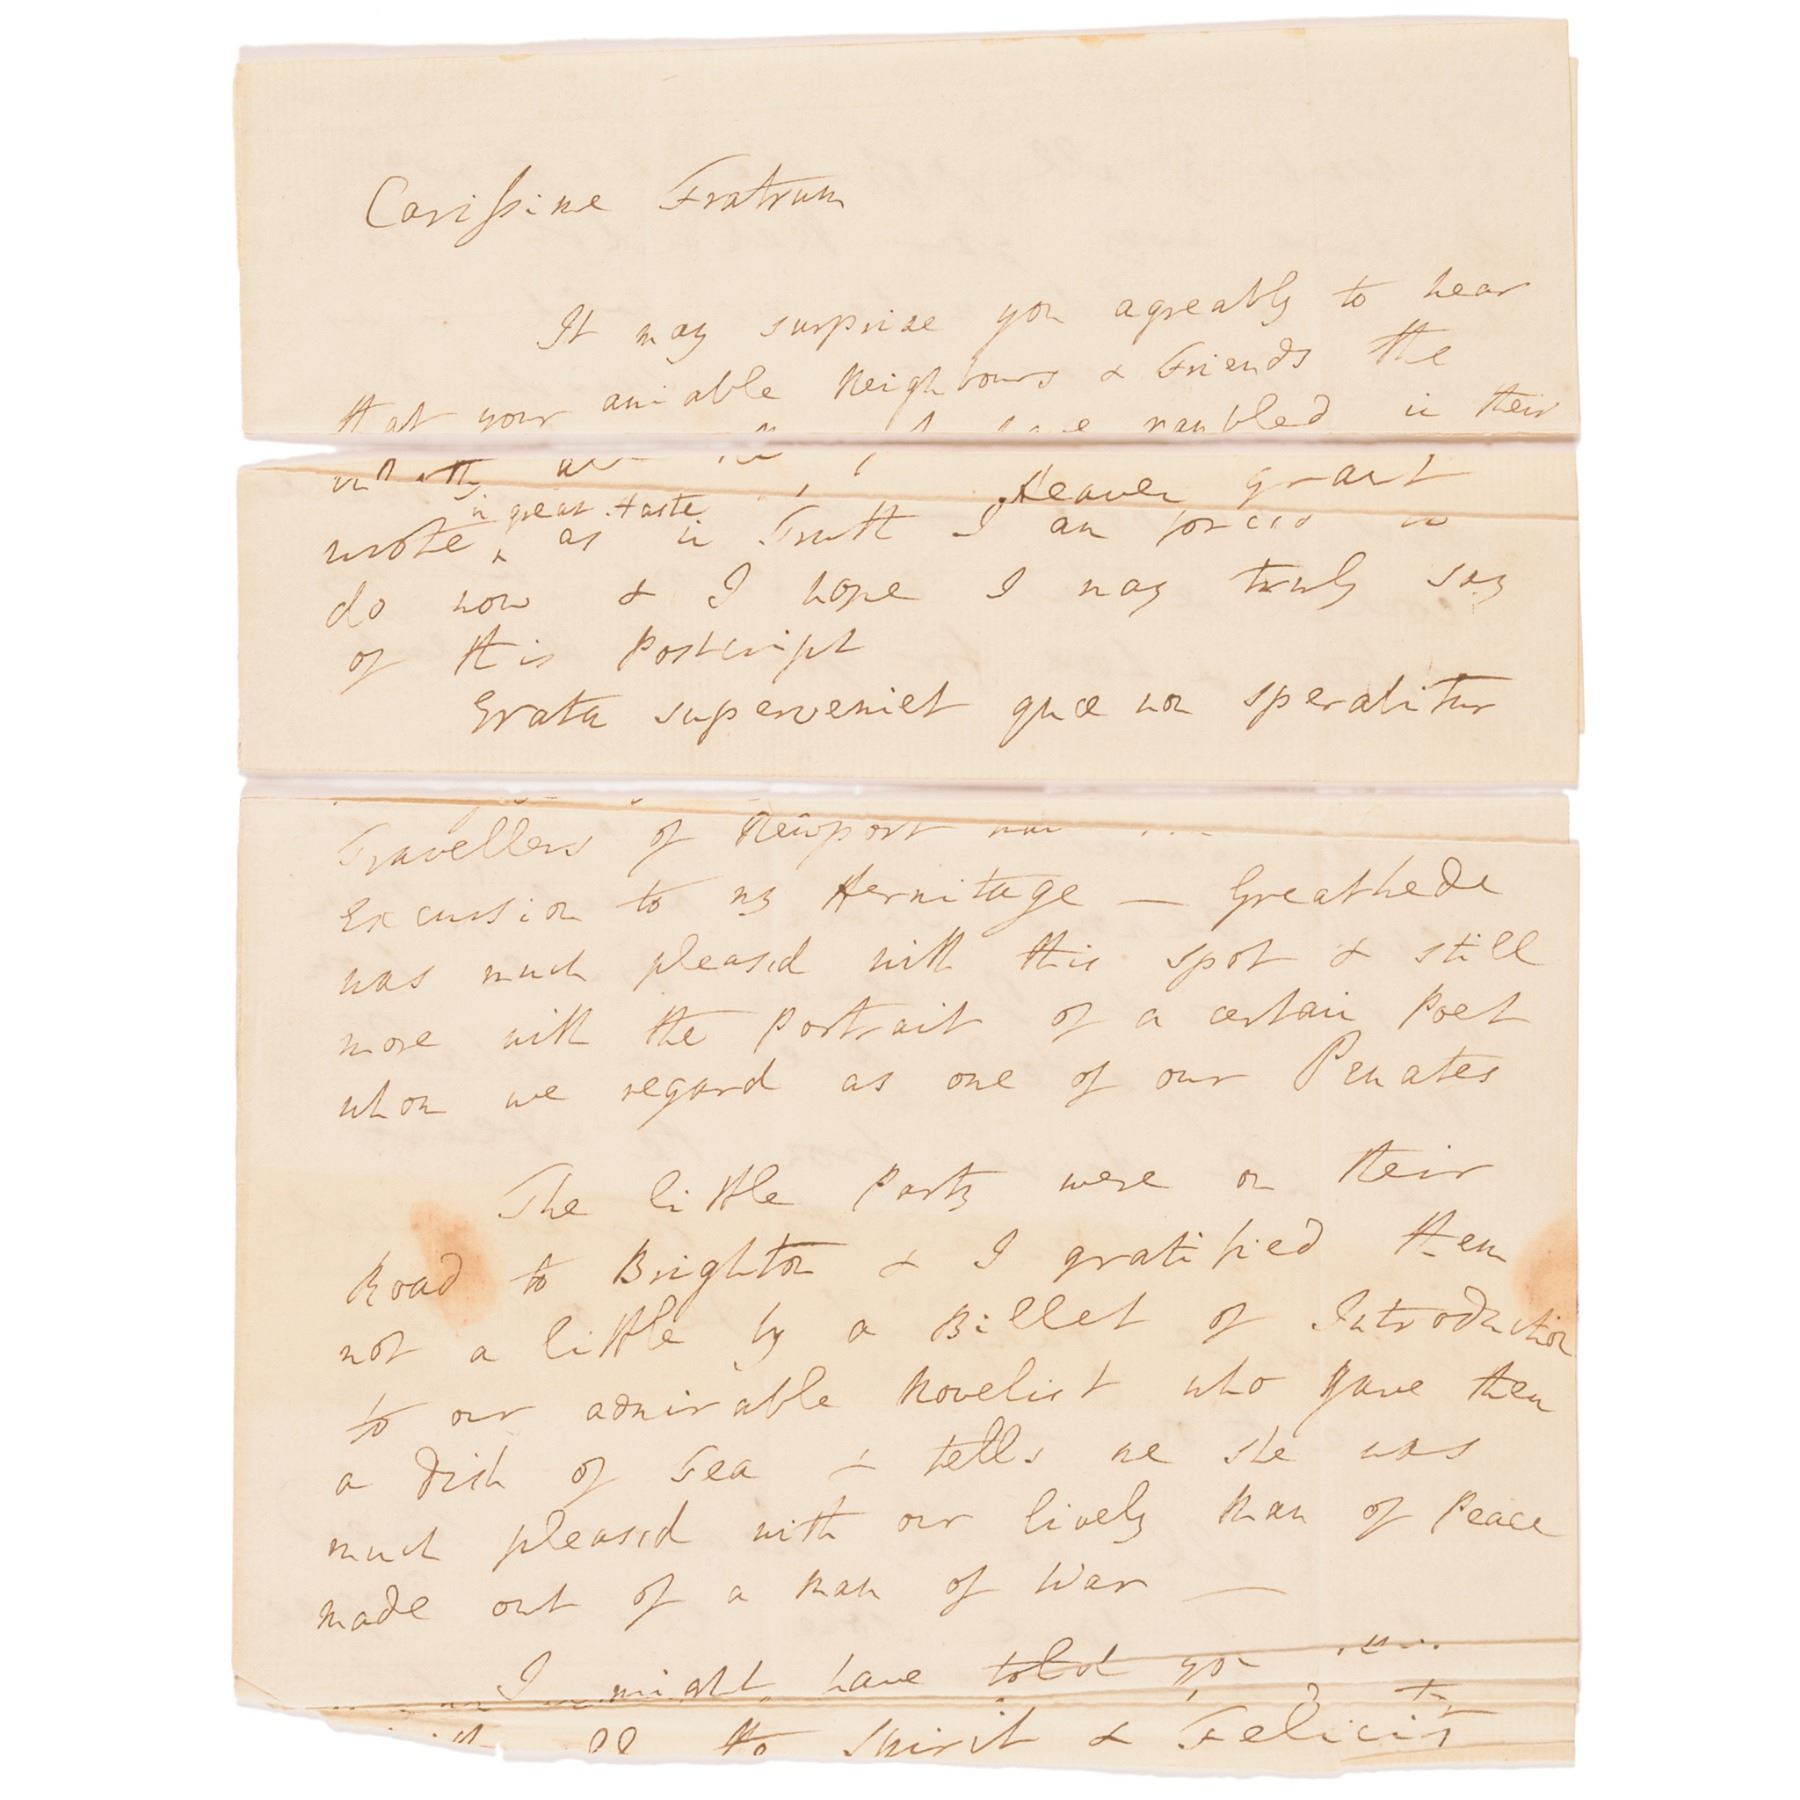 Carissime Fratrum
It may surprise you agreably to hear
that your amiable Neighbours & Friends the
rambled in their
Heaven grant
in great Haste
wrote as in Truth I am forced to
do now & I hope I may truly say
of this Postcript
Grata superveniet quæ non sperabitur
Travellers of Newport
Excursion to my Hermitage — Greathede
was much pleased with this spot & still
more with the Portrait of a certain Poet
whom we regard as one of our Penates
The little Party were on their
Road to Brighton & I gratified them
not a little by a Billet of Introduction
to our admirable Novelist who gave them
a dish of Tea & tells me she was
much pleased with our lively Man of Peace
made out of a Man of War —
I might have told you
to Spirit & Felicity